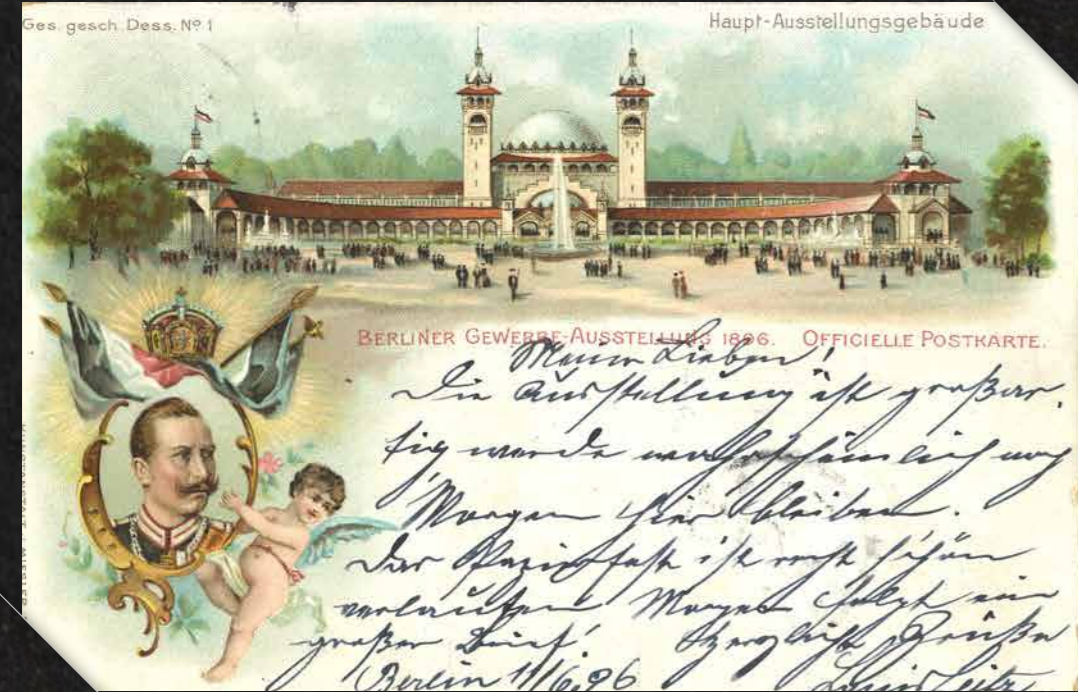 Ges. gesch. Dess. Nº 1
Haupt-Ausstellungsgebäude
BERLINER GEWERBE-AUSSTELLUNG 1896. OFFICIELLE POSTKARTE.
Meine Lieben!
Die Ausstellung ist großar-
tig werde wahrscheinlich noch
Morgen hier bleiben.
Das fest ist recht schön
verlaufen Morgen folgt ein
großer Brief! Herzlichste Grüße
Berlin 11/6.96